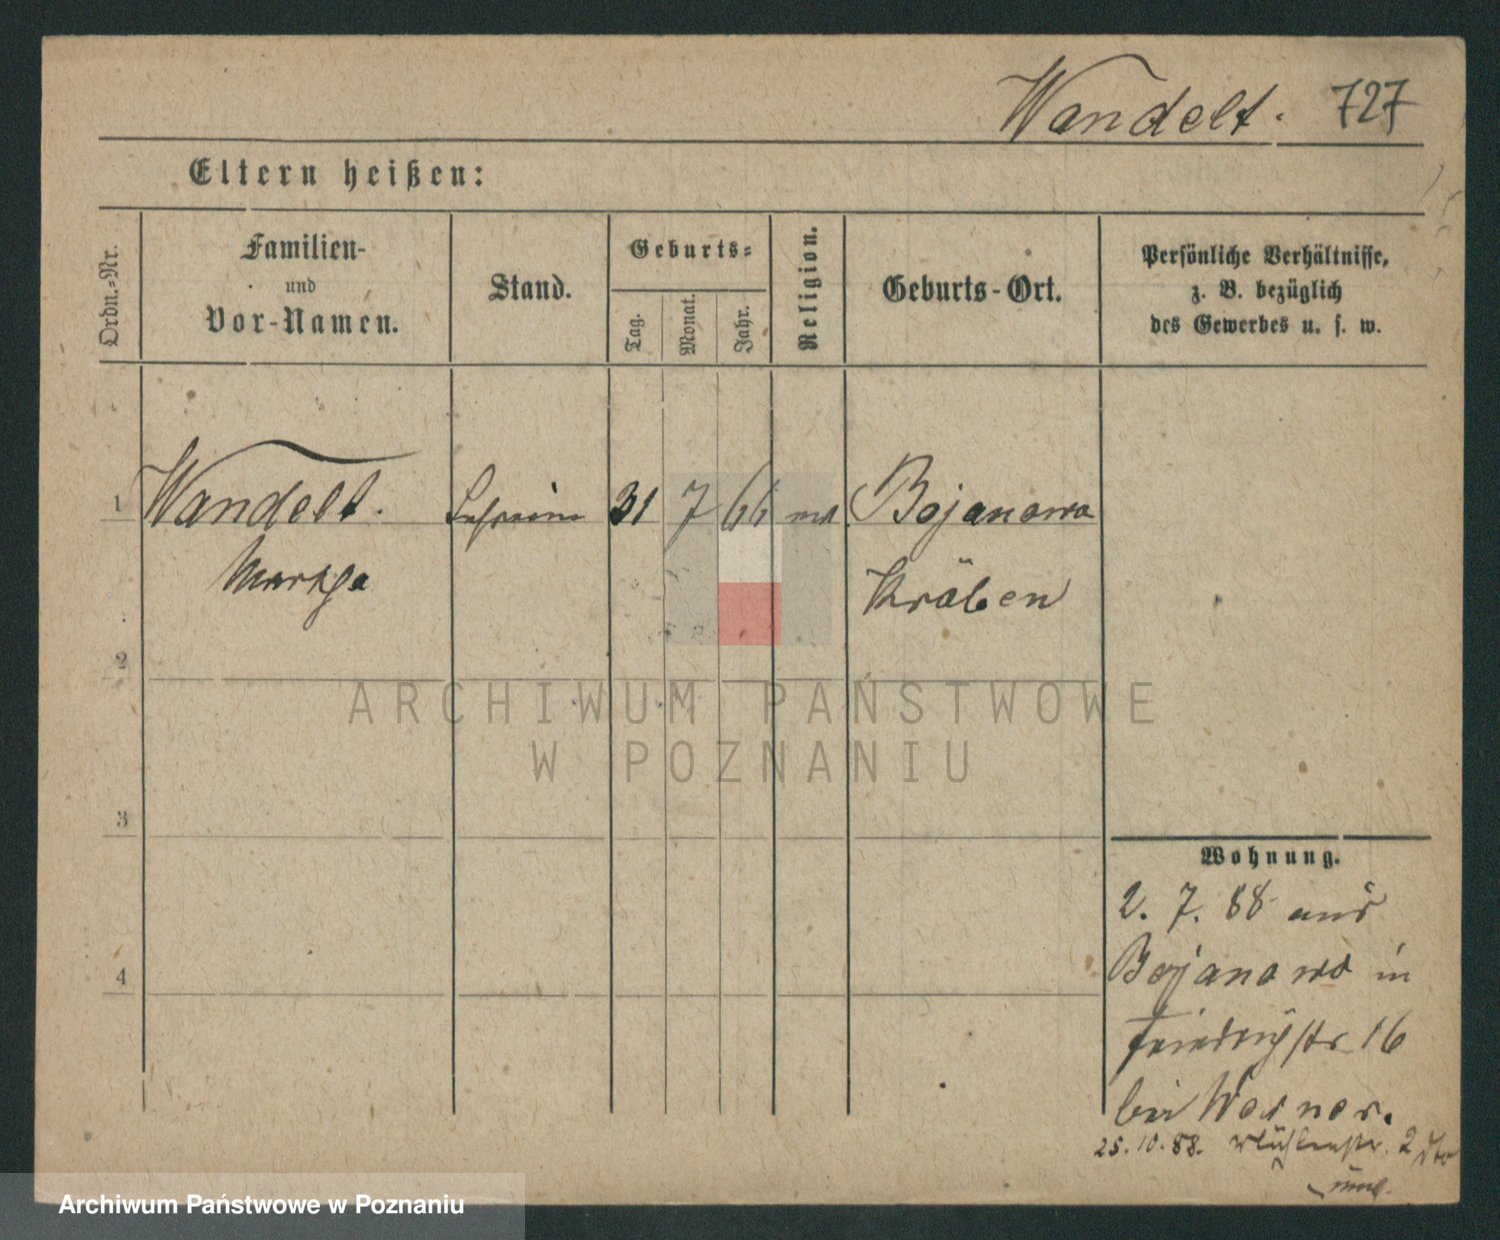 Wandelt. 727
Eltern heißen:
Ordn.=Nr.
Familien-
und
Vor-Namen.
Stand.
Geburts=
Tag.
Monat.
Jahr.
Religion.
Geburts-Ort.
Persönliche Verhältnisse,
z. B. bezüglich
des Gewerbes u. s. w.
1 Wandelt. 31 7 66 Bojanowo
Kröben
2
3
4
ARCHIWUM PAŃSTWOWE
W POZNANIU
Wohnung.
2. 7. 88 aus
Bojanowo in
Friedrichstr. 16
bei Werner.
25. 10. 88. 2
Archiwum Państwowe w Poznaniu